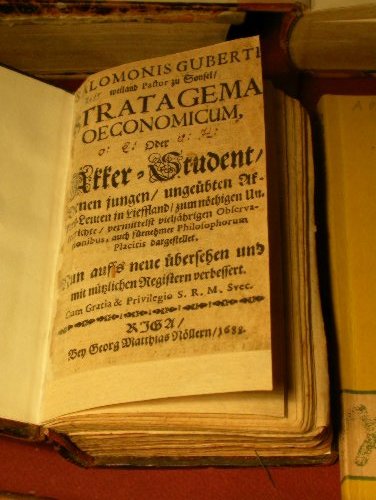 ALOMONIS GUBERTI
weiland Pastor zu Sonsel/
TRATAGEMA
OECONOMICUM,
Oder
Akker-Student/
Denen jungen/ ungeübten Ak-
Leuten in Lieffland/ zum nöthigen Un-
richte/ vermittelst vieljährigen Observa-
tionibus, auch fürnehmer Philosophorum
Placitis dargestellet.
Nun auffs neue übersehen und
mit nützlichen Registern verbessert.
Cum Gratia & Privilegio S. R. M. Svec.
RIGA/
Bey Georg Matthias Nöllern/ 1688.